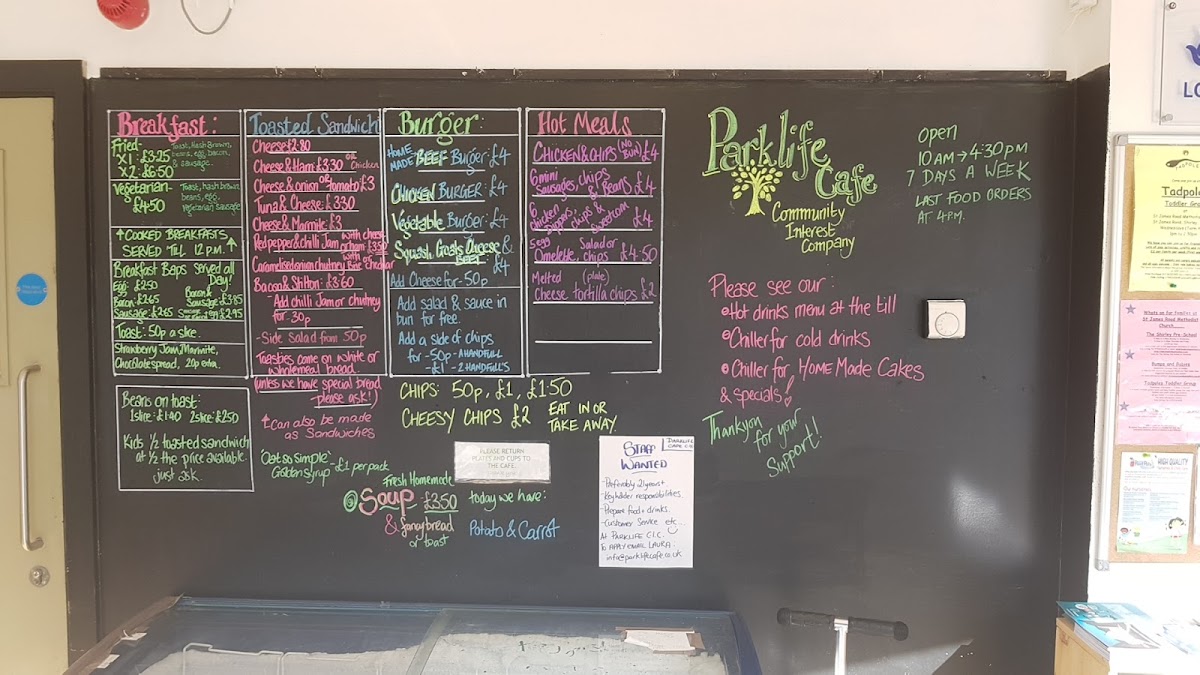 Breakfast:
Fried-
X1: £3.25
X2: £6.50
Toast, Hash Brown,
beans, egg, bacon,
& sausage.
Vegetarian-
£4.50
Toast, hash brown,
beans, egg,
Vegetarian Sausage
↑ COOKED BREAKFASTS ↑
SERVED TILL 12 P.M.
Breakfast Baps served all
Day!
Egg: £2.50
Bacon: £2.65
Sausage: £2.65
Bacon &
Sausage: £3.85
Toast: 50p a slice.
Strawberry Jam, Marmite,
Chocolate spread, 20p extra.
Beans on toast:
1 slice: £1.40 2 slice: £2.50
Kids ½ toasted sandwich
at ½ the price available.
just ask.
Toasted Sandwich
Cheese £2.80
Cheese & Ham: £3.30 or Chicken
Cheese & Onion or Tomato £3
Tuna & Cheese: £3.30
Cheese & Marmite: £3
Red pepper & chilli Jam with cheese
or ham: £3.50
Caramelised onion chutney Brie or cheddar
Bacon & Stilton: £3.60
Add chilli Jam or chutney
for 30p
-Side Salad from 50p
Toasties come on white or
wholemeal bread
(unless we have special bread
-please ask!)
↑ Can also be made
as Sandwiches
Burger:
HOME
MADE BEEF Burger: £4
CHICKEN BURGER: £4
Vegetable Burger: £4
Squash, Goats Cheese &
Beef £4
Add Cheese for - 50p
Add salad & sauce in
bun for free.
Add a side of chips
for -50p - A HANDFULL
-£1 - 2 HANDFULL'S
Hot Meals
CHICKEN & CHIPS (NO BUN) £4
6 mini
Sausages, chips
& Beans £4
6
chicken
dippers, chips &
sweetcorn £4
3 egg
Omelette, Salad or
chips £4.50
Melted (plate)
Cheese tortilla chips £2
CHIPS: 50p, £1, £1.50
CHEESY CHIPS £2
EAT IN OR
TAKE AWAY.
'Oat so Simple' - £1 per pack
Golden Syrup
Fresh Homemade
Soup £3.50
& fancy bread
or toast
today we have:
Potato & Carrot
PLEASE RETURN
PLATES AND CUPS TO
THE CAFE
PARKLIFE
CAFE CIC
STAFF
WANTED
- Preferably 21yrs+
- Key holder responsibilities
- Prepare food & drinks.
- Customer Service etc...
At PARKLIFE C.I.C.
To APPLY EMAIL LAURA:
info@parklifecafe.co.uk
Parklife
Cafe
Community
Interest
Company
OPEN
10AM → 4:30PM
7 DAYS A WEEK
LAST FOOD ORDERS
AT 4PM.
Please see our:
Hot drinks menu at the till
Chiller for cold drinks
Chiller for, HOME MADE Cakes
& specials!
Thankyou
for your
support!
LO
Tadpole
Toddler Gro
What's on for families at
St James Road Methodist
Church
The Shirley Pre-School
Bumps and Babies
Tadpoles Toddler Group
HIGH QUALITY